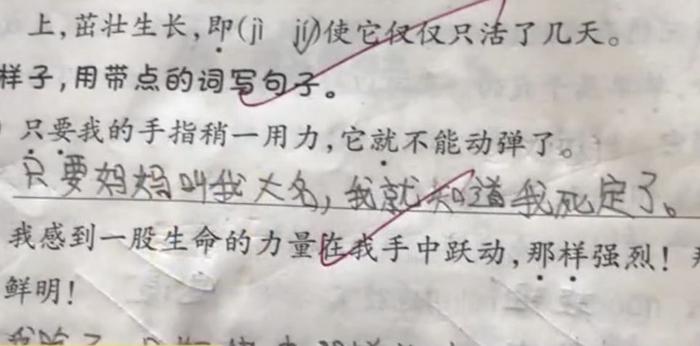 上，茁壮生长，即(jì jí)使它仅仅只活了几天。
样子，用带点的词写句子。
只要我的手指稍一用力，它就不能动弹了。
只要妈妈叫我大名，我就知道我死定了。
我感到一股生命的力量在我手中跃动，那样强烈！
鲜明！